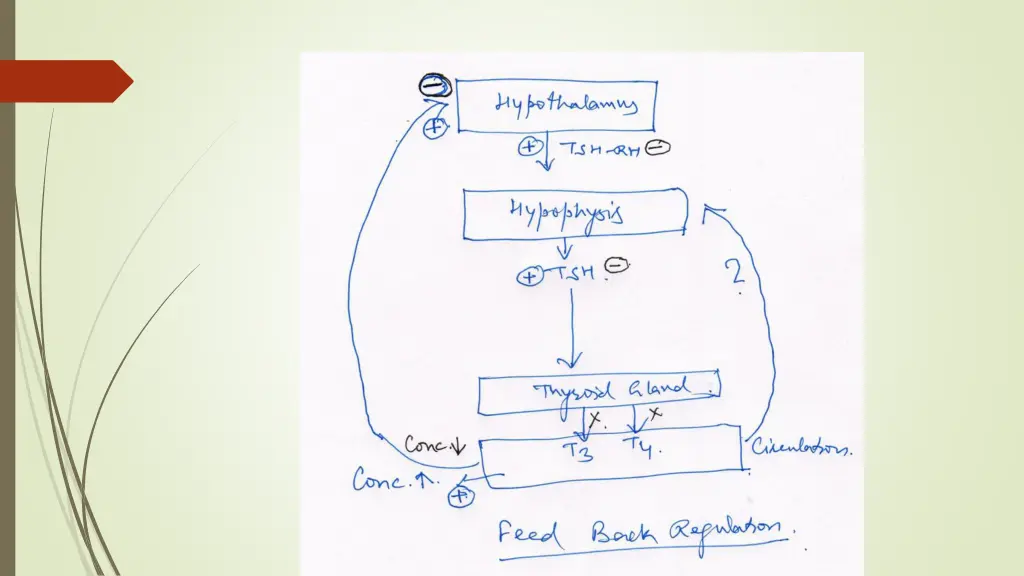 ⊖
Hypothalamus
⊕
⊕ TSH-RH ⊖
Hypophysis
⊕ TSH ⊖
?
Thyroid Gland.
X. X
Conc.↓ T3 T4. Circulation.
Conc.↑.
⊕
Feed Back Regulation.